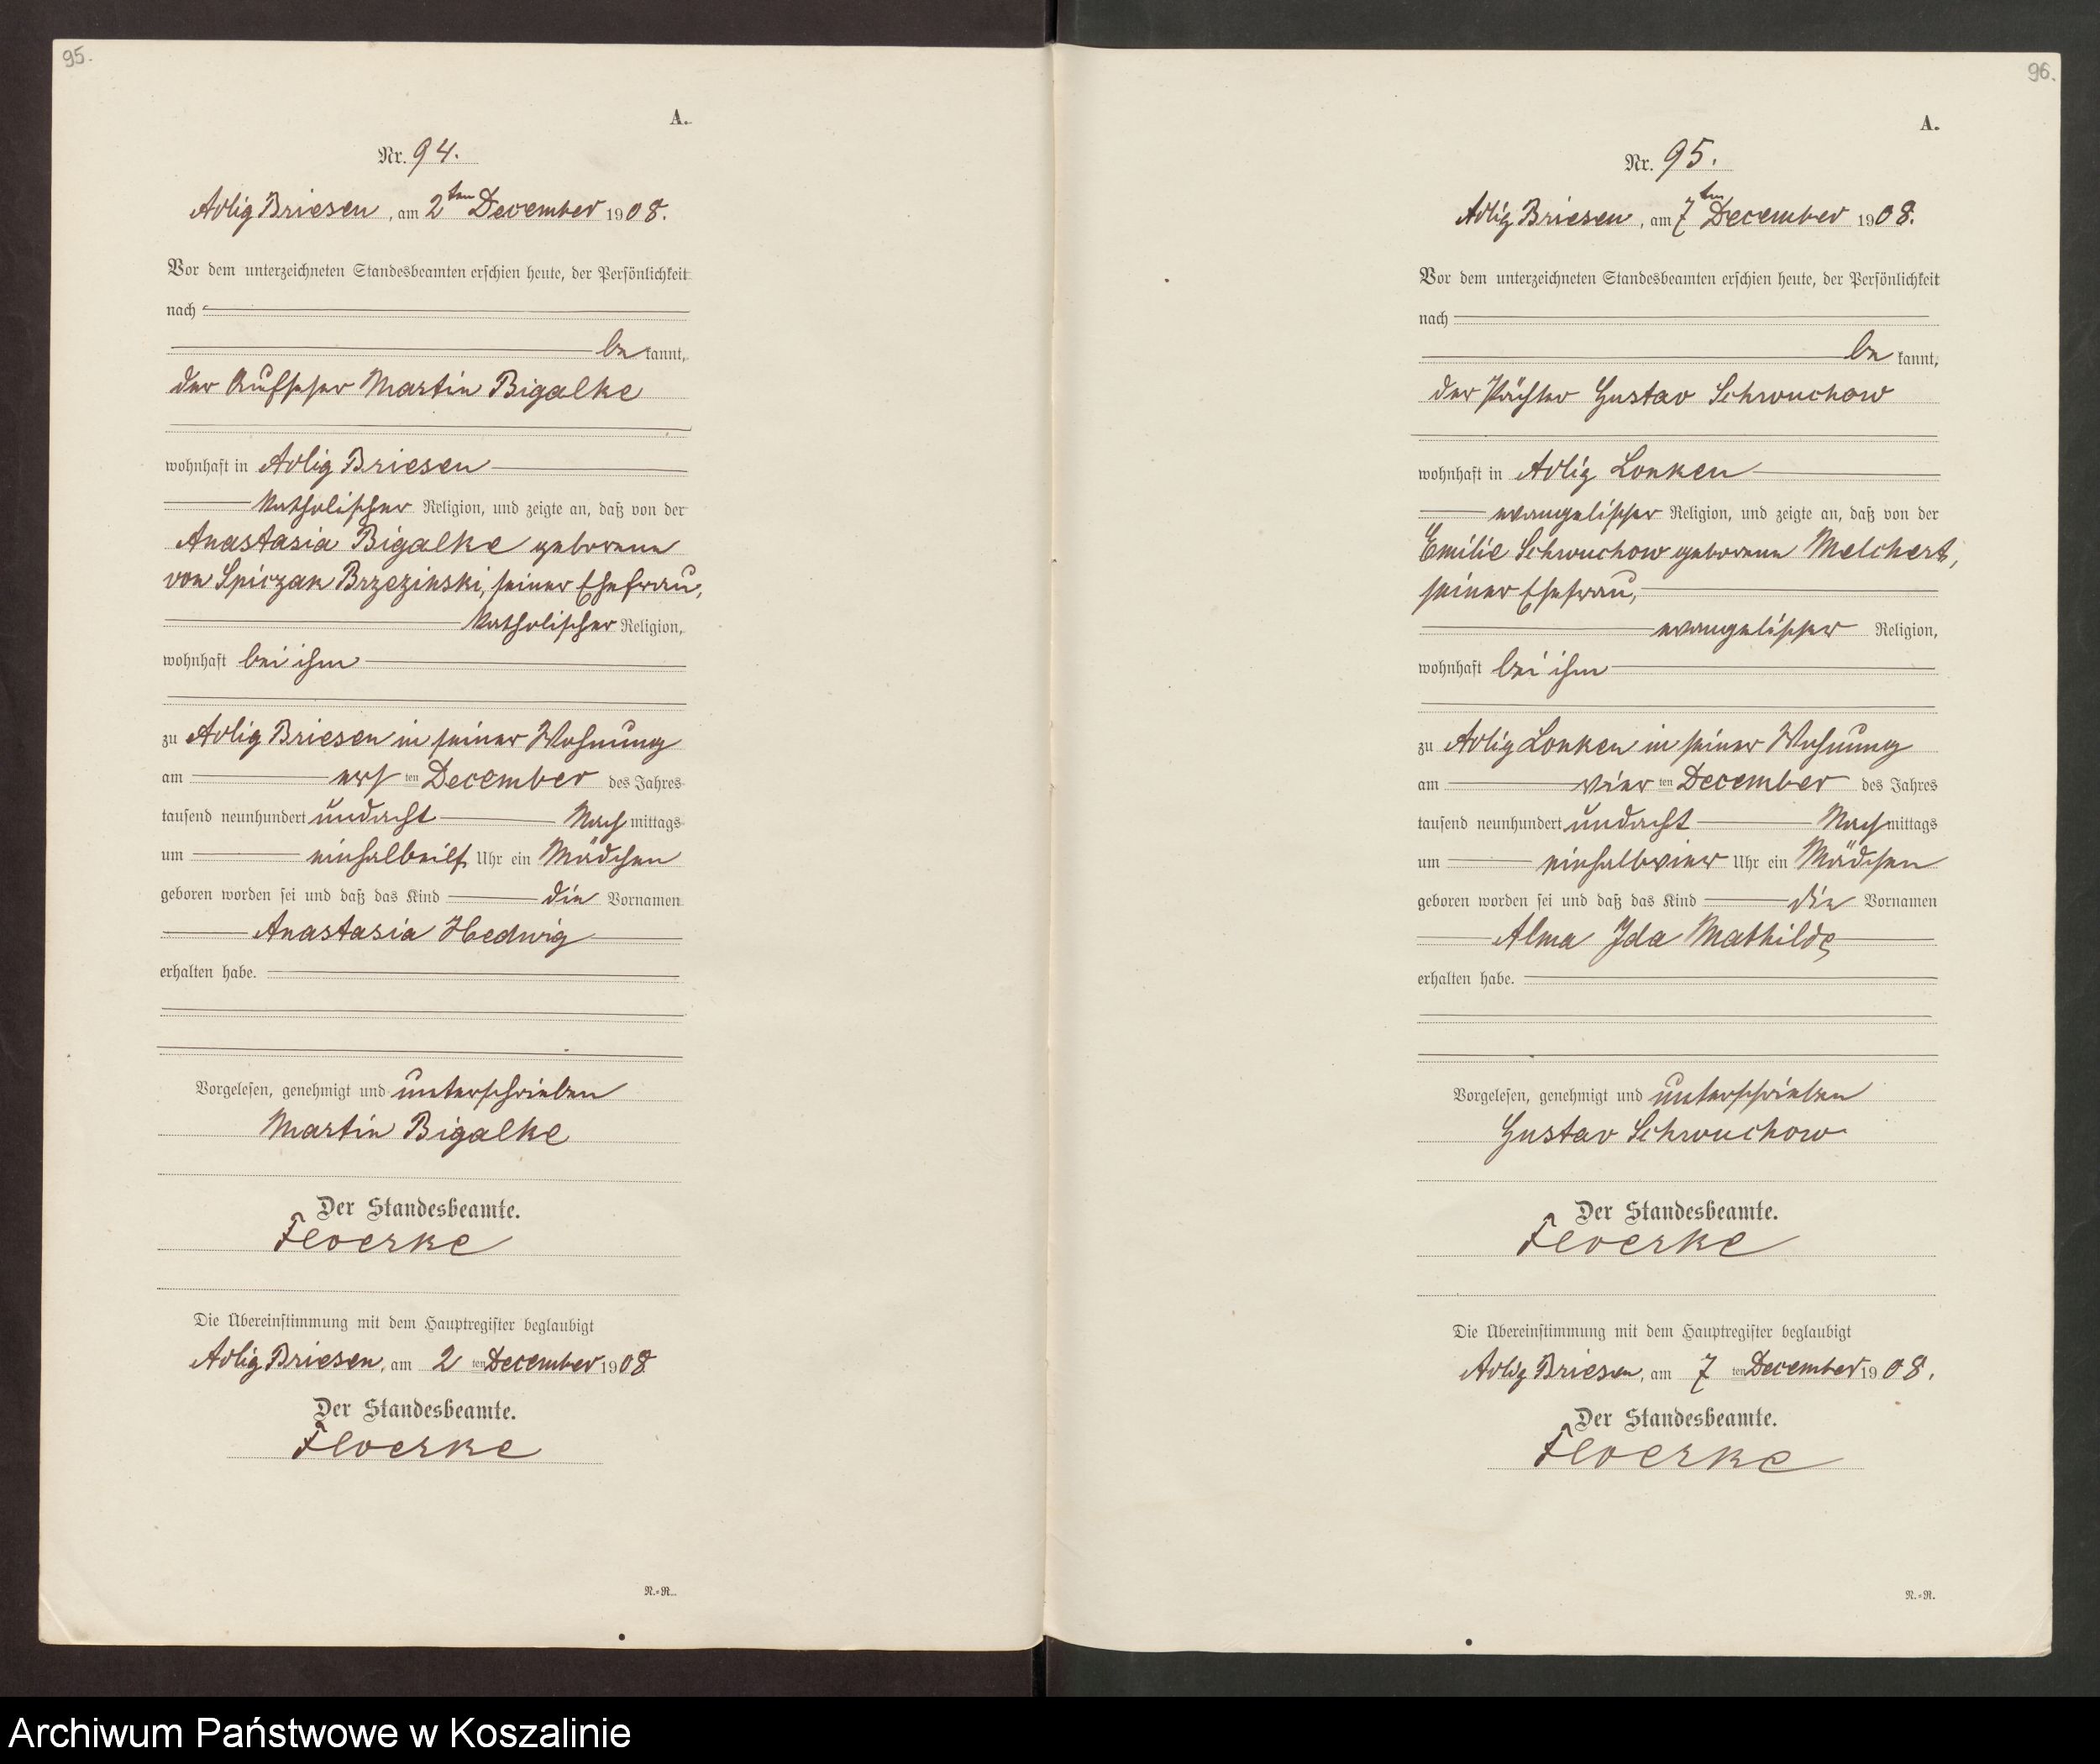 95.
A.
Nr. 94.
Adlig Briesen, am 2ten December 1908.
Vor dem unterzeichneten Standesbeamten erschien heute, der Persönlichkeit
nach
be kannt,
der Aufseher Martin Bigalke
wohnhaft in Adlig Briesen
katholischer Religion, und zeigte an, daß von der
Anastasia Bigalke geborene
von Spiczak Brzezinski, seiner Ehefrau,
katholischer Religion,
wohnhaft bei ihm
zu Adlig Briesen in seiner Wohnung
am ersten December des Jahres
tausend neunhundert undacht Nachmittags
um einhalbeilf Uhr ein Mädchen
geboren worden sei und daß das Kind die Vornamen
Anastasia Hedwig
erhalten habe.
Vorgelesen, genehmigt und unterschrieben
Martin Bigalke
Der Standesbeamte.
Floerke
Die Übereinstimmung mit dem Hauptregister beglaubigt
Adlig Briesen, am 2 ten December 1908
Der Standesbeamte.
Floerke
N.=R.
96.
A.
Nr. 95.
Adlig Briesen, am 7ten December 1908.
Vor dem unterzeichneten Standesbeamten erschien heute, der Persönlichkeit
nach
be kannt,
der Pächter Gustav Schwuchow
wohnhaft in Adlig Lonken
evangelischer Religion, und zeigte an, daß von der
Emilie Schwuchow geborene Melchert,
seiner Ehefrau,
evangelischer Religion,
wohnhaft bei ihm
zu Adlig Lonken in seiner Wohnung
am vierten December des Jahres
tausend neunhundert undacht Nachmittags
um einhalbvier Uhr ein Mädchen
geboren worden sei und daß das Kind die Vornamen
Alma Ida Mathilde
erhalten habe.
Vorgelesen, genehmigt und unterschrieben
Gustav Schwuchow
Der Standesbeamte.
Floerke
Die Übereinstimmung mit dem Hauptregister beglaubigt
Adlig Briesen, am 7 ten December 1908.
Der Standesbeamte.
Floerke
N.=R.
Archiwum Państwowe w Koszalinie